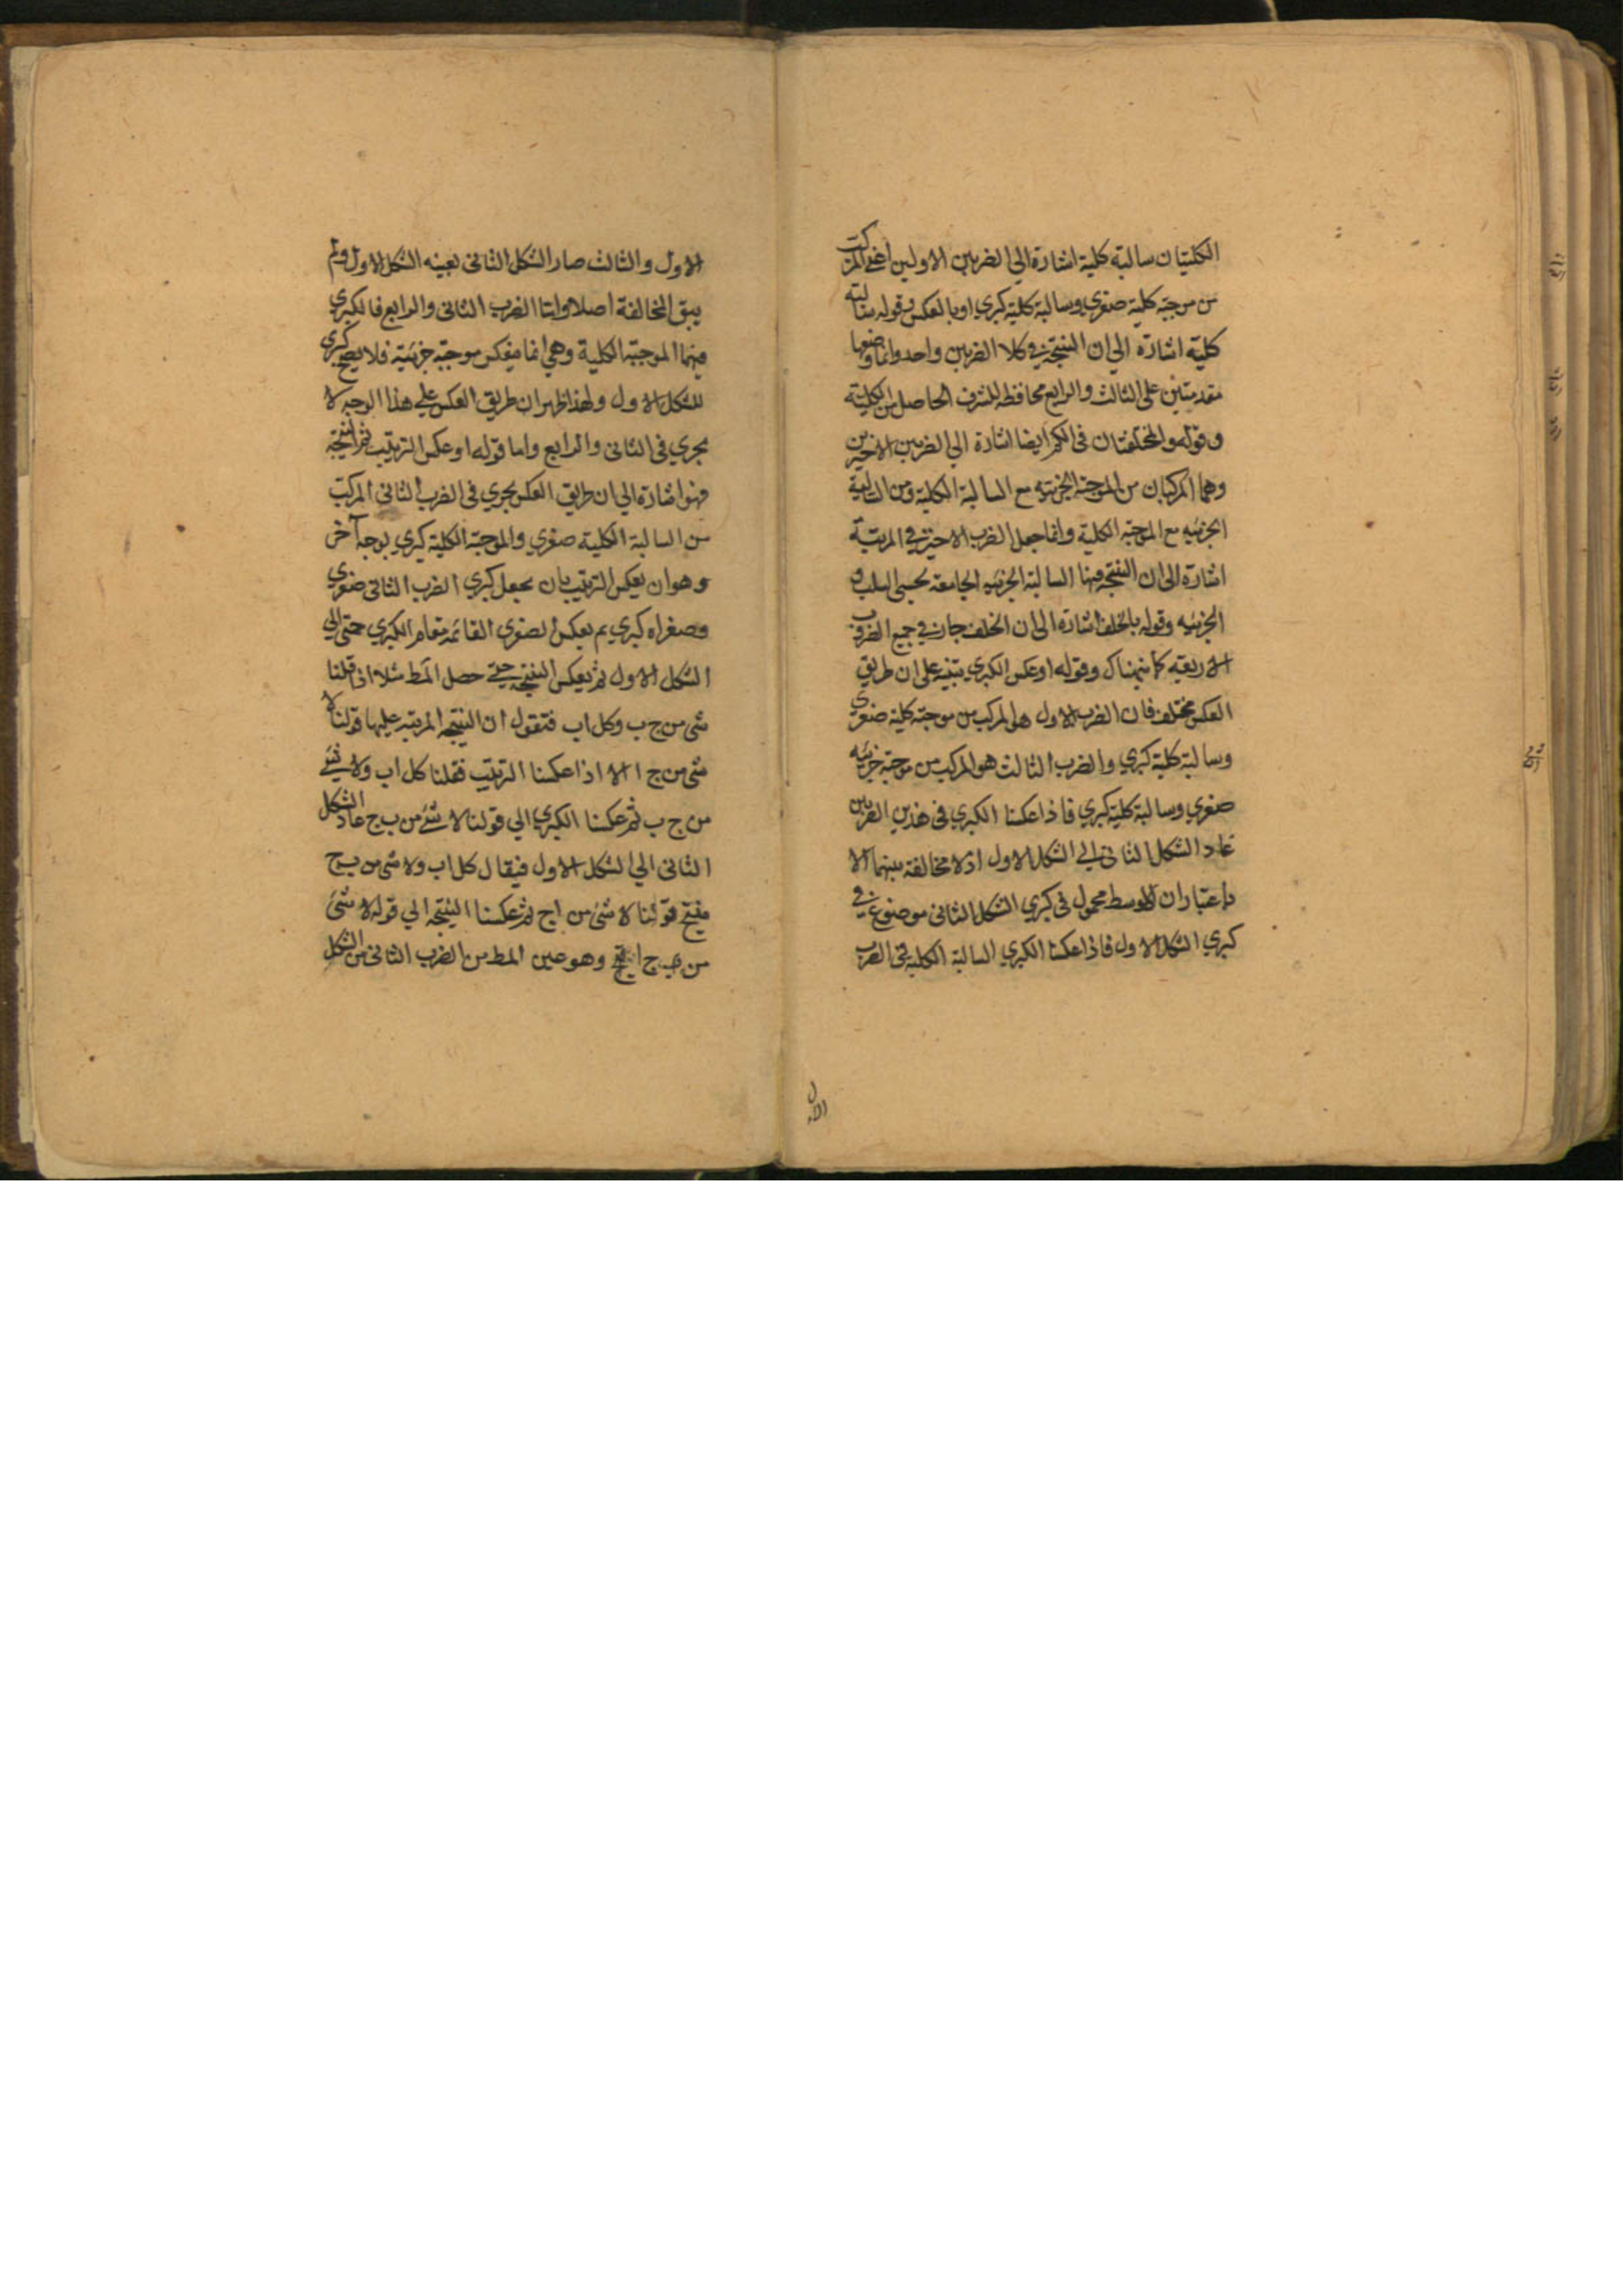 الكليتان سالبة كلية اشارة الي الضربين الاولين اعني المركبت
من موجبة كلية صغري وسالبة كلية كبري او بالعكس وقوله سالبة
كلية اشارة الي ان النتيجة في كلا الضربين واحد وانما وضعها
مقدمتين علي الثالث والرابع محافظة للشرف الحاصل من الكلية
وقوله والمختلفتان في الكم ايضا اشارة الي الضربين الاخيرين
وهما المركبان من الموجبة الجزئية مع السالبة الكلية ومن السالبة
الجزئيه مع الموجبة الكلية وانما جعل الضرب الاخير في المرتبة
اشارة الي ان النتيجة فيها السالبة الجزئيه الجامعة لحسبي السلب و
الجزئيه وقوله بالخلف اشارة الي ان الخلف جار في جميع الضروب
الاربعة كما نبهناك وقوله او عكس الكبري تنبيه علي ان طريق
العكس مختلف فان الضرب الاول هو المركب من موجبة كلية صغري
وسالبة كلية كبري والضرب الثالث هو المركب من موجبة جزئيه
صغري وسالبة كلية كبري فاذا عكسنا الكبري في هذين الضربين
عاد الشكل الثاني الي الشكل الاول اذ لا مخالفة بينهما الا
باعتبار ان الاوسط محمول في كبري الشكل الثاني موضوع في
كبري الشكل الاول فاذا عكسنا الكبري السالبة الكلية في الضرب
الاول
الاول والثالث صار الشكل الثاني بعينه الشكل الاول ولم
يبق المخالفة اصلا واما الضرب الثاني والرابع فالكبري
فيهما الموجبة الكلية وهي انما ينعكس موجبة جزئية فلا يصح كبري
للشكل الاول ولهذا ظهر ان طريق العكس علي هذا الوجه لا
يجري في الثاني والرابع واما قوله او عكس الترتيب ثم النتيجة
فهو اشارة الي ان طريق العكس يجري في الضرب الثاني المركب
من السالبة الكلية صغري والموجبة الكلية كبري بوجه آخر
وهو ان يعكس الترتيب بان يجعل كبري الضرب الثاني صغري
وصغراه كبري ثم يعكس الصغري القائمة مقام الكبري حتي الي
الشكل الاول ثم يعكس النتيجة حتي حصل المط مثلا اذا قلنا لا
شئ من ج ب وكل اب فتقول ان النتيجة المرتبة عليها قولنا لا
شئ من ج ا الا اذا عكسنا الترتيب فقلنا كل اب ولا شئ
من ج ب ثم عكسنا الكبري الي قولنا لا شئ من ب ج عاد الشكل
الثاني الي الشكل الاول فيقال كل اب ولا شئ من ب ج
فينتج قولنا لا شئ من ا ج ثم عكسنا النتيجة الي قوله لا شئ
من ج ا وهو عين المط من الضرب الثاني من الشكل